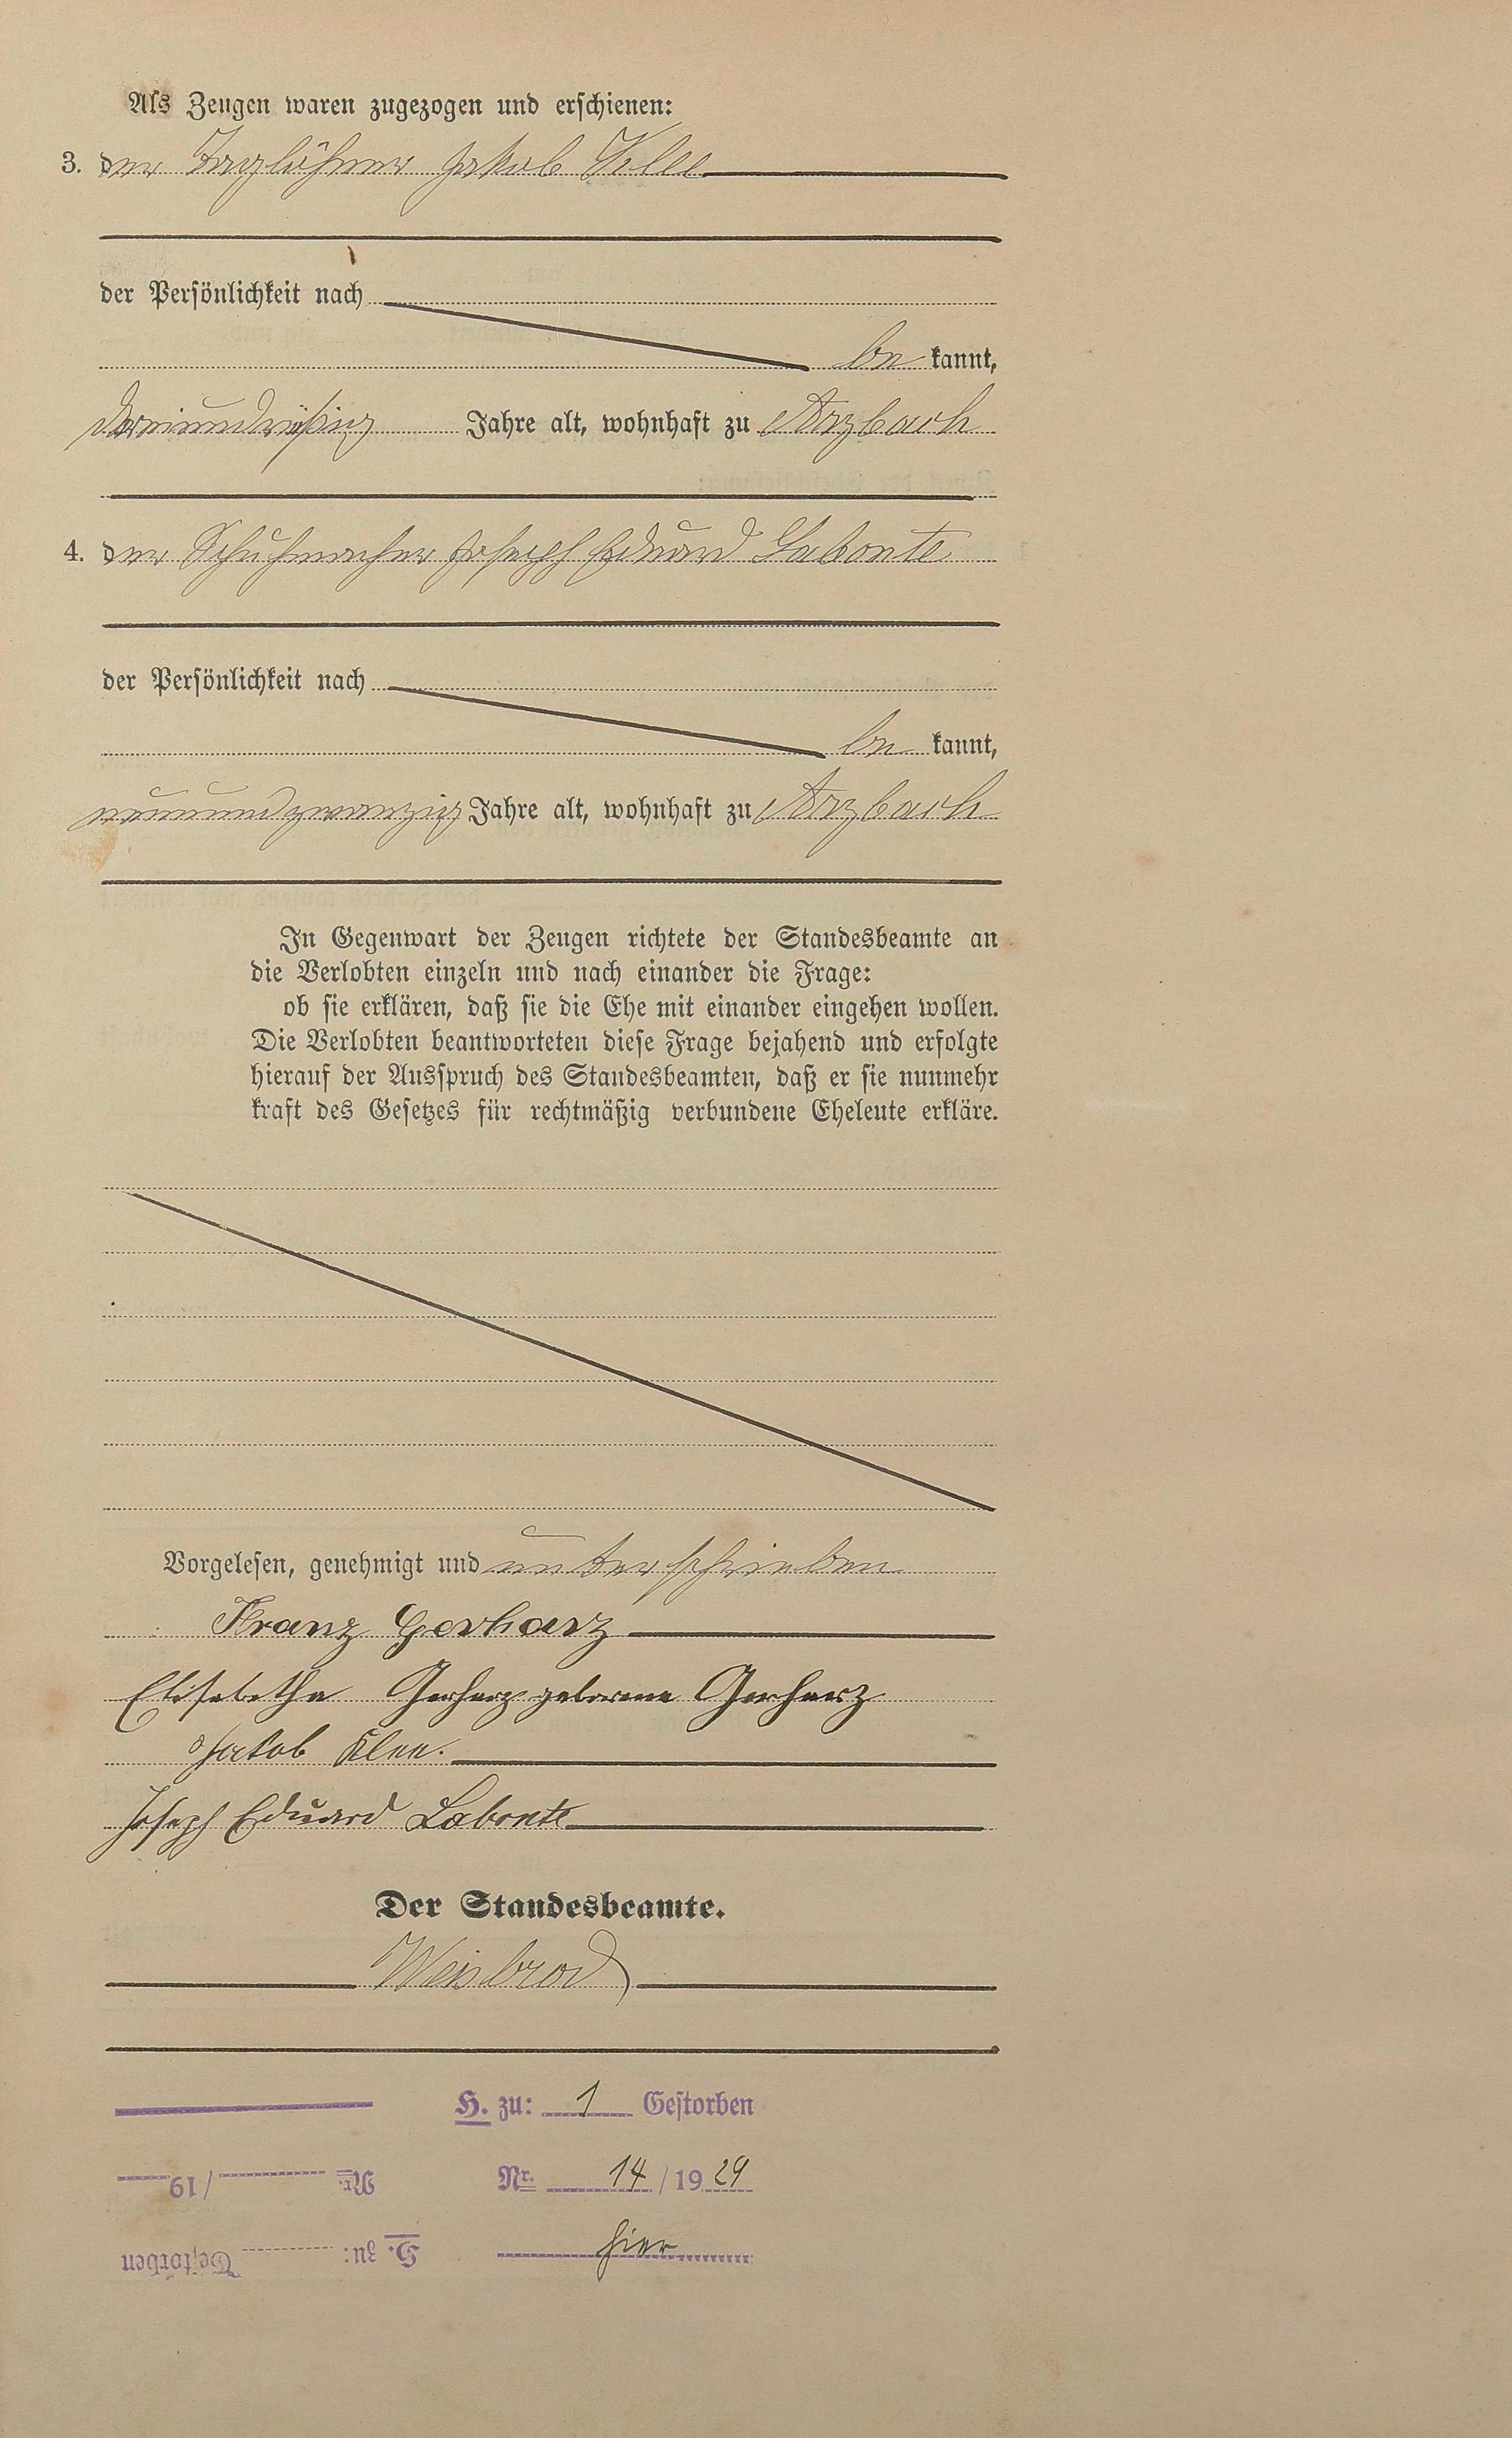 Als Zeugen waren zugezogen und erschienen:
3. der Taglöhner Jakob Klee
der Persönlichkeit nach
be kannt,
dreiunddreißig Jahre alt, wohnhaft zu Arzbach
4. der Schuhmacher Joseph Eduard Labonte
der Persönlichkeit nach
be kannt,
neunundzwanzig Jahre alt, wohnhaft zu Arzbach
In Gegenwart der Zeugen richtete der Standesbeamte an
die Verlobten einzeln und nach einander die Frage:
ob sie erklären, daß sie die Ehe mit einander eingehen wollen.
Die Verlobten beantworteten diese Frage bejahend und erfolgte
hierauf der Ausspruch des Standesbeamten, daß er sie nunmehr
kraft des Gesetzes für rechtmäßig verbundene Eheleute erkläre.
Vorgelesen, genehmigt und unterschrieben
Franz Gerharz
Elisabetha Gerharz geborene Gerharz
Jakob Klee.
Joseph Eduard Labonte
Der Standesbeamte.
Weisbrod
H. zu: 1 Gestorben
Nr. 14 / 19 29
hier
H. zu: Gestorben
Nr. / 19